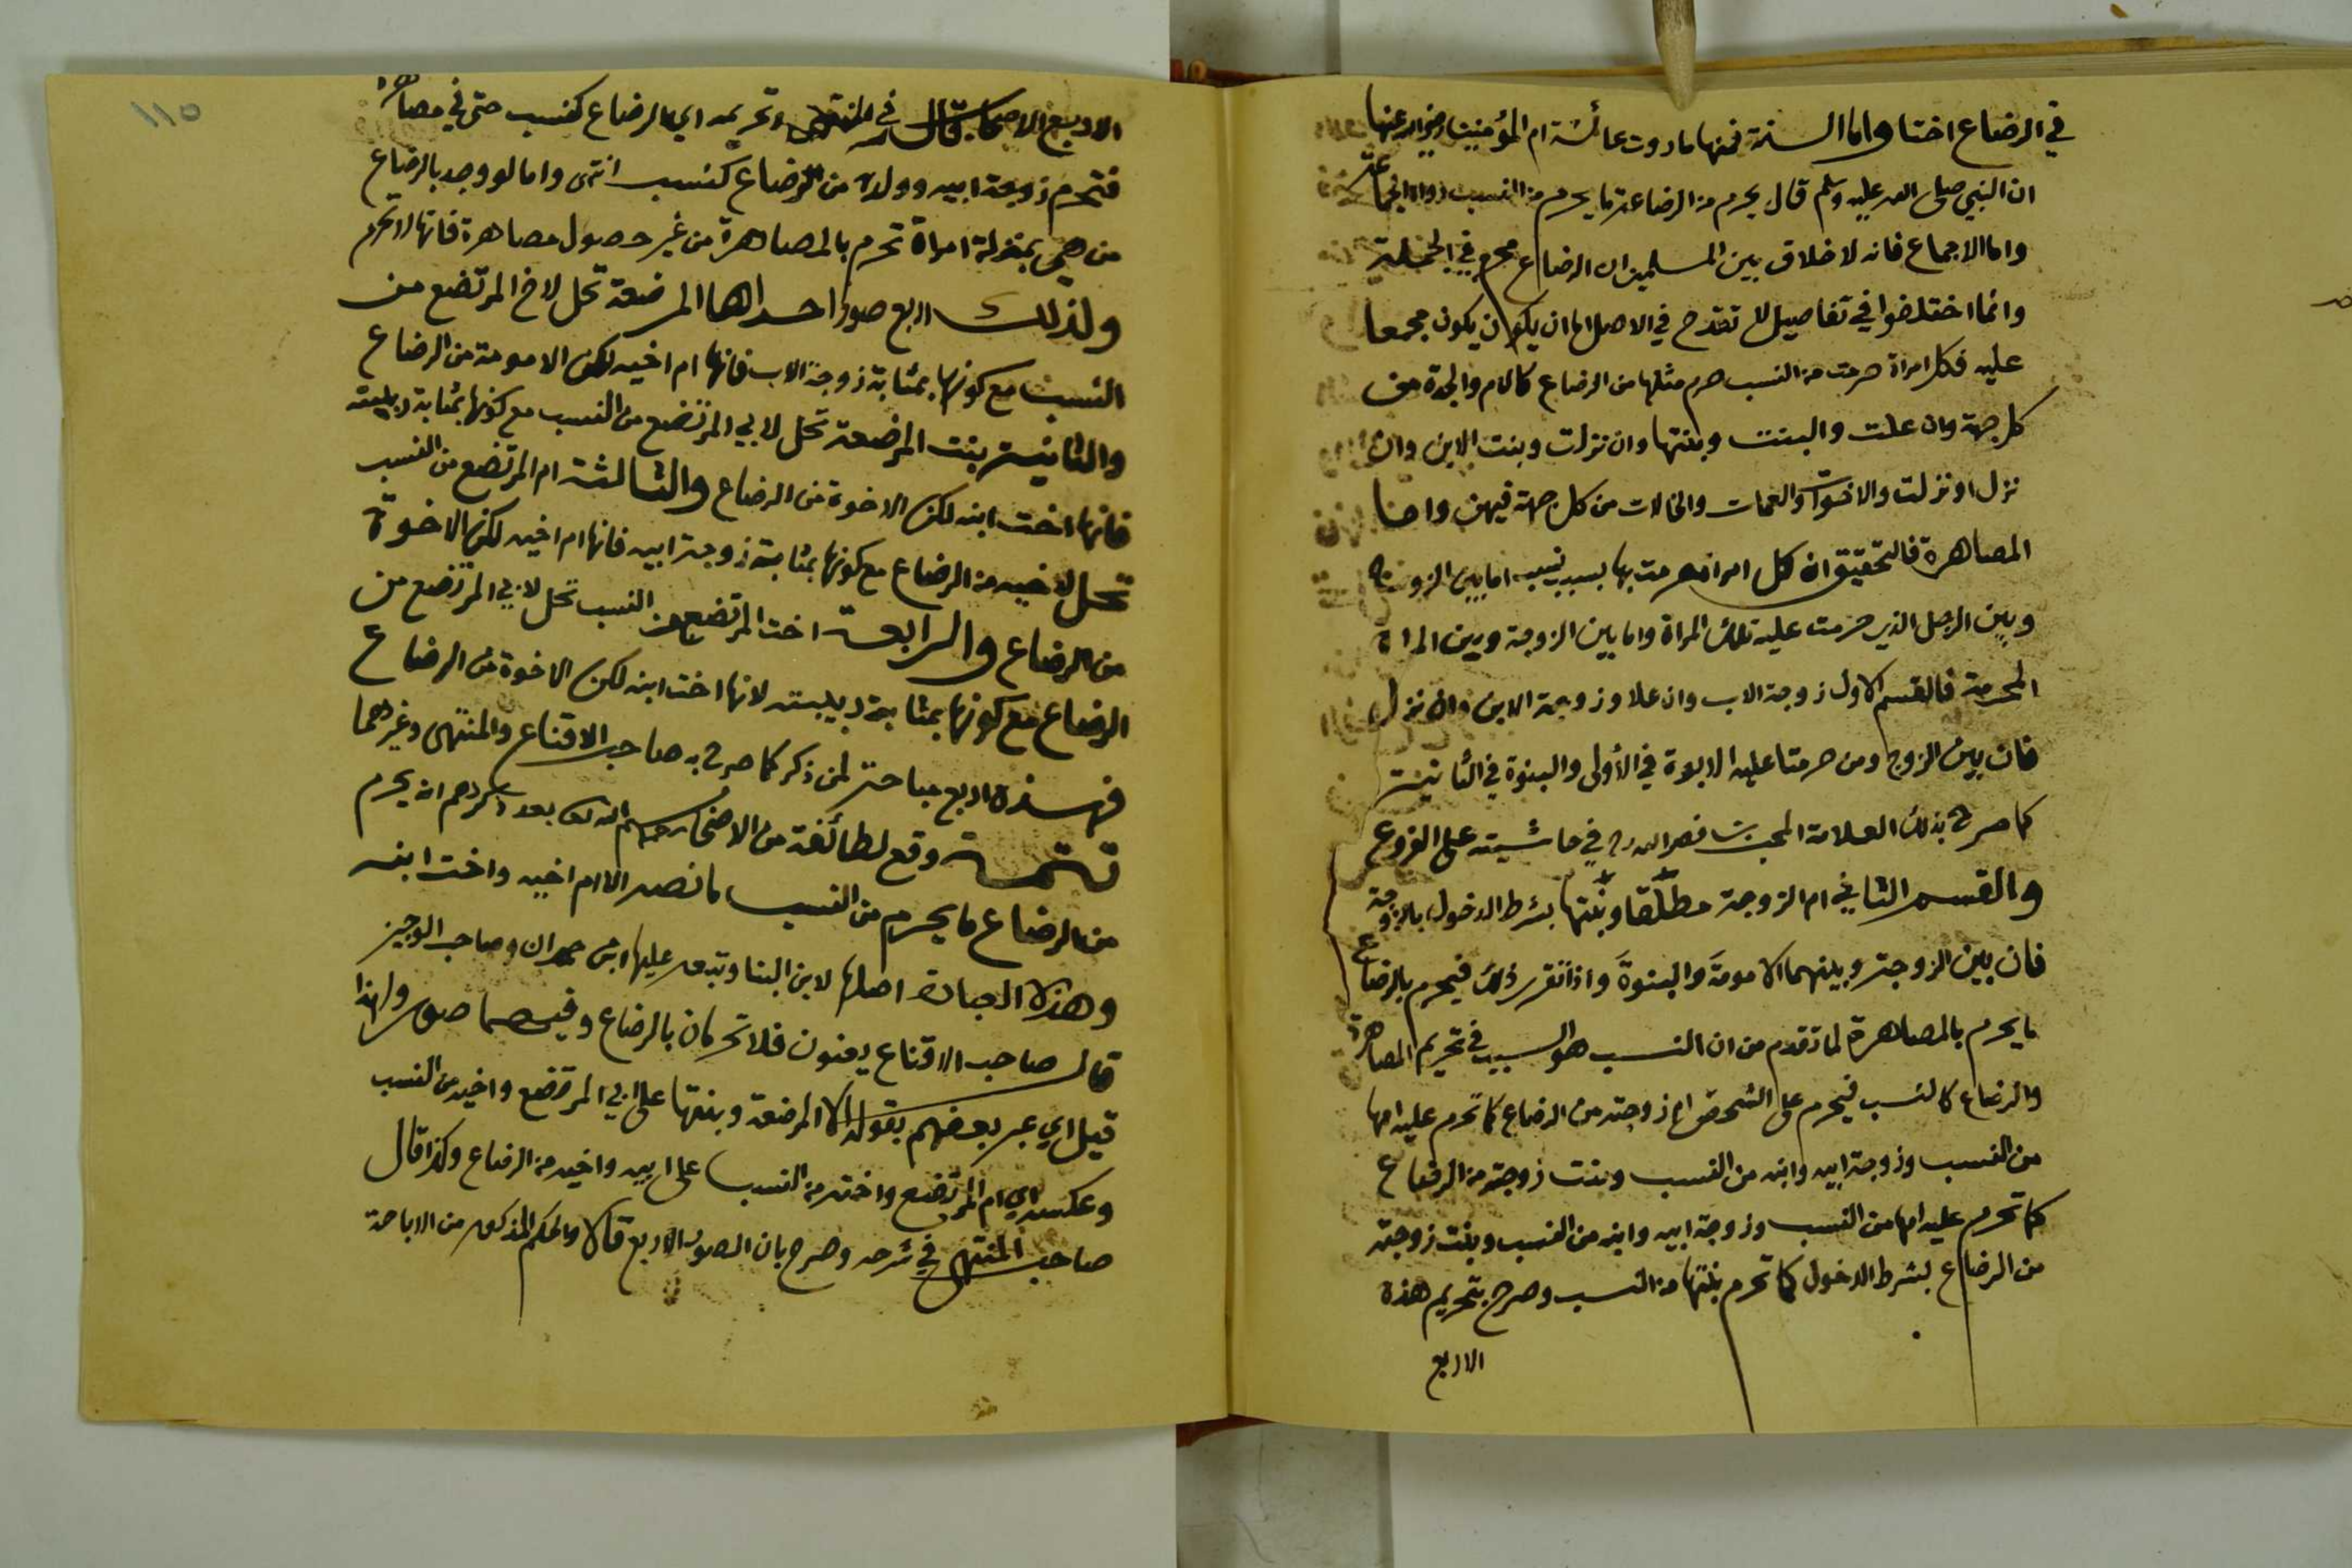 في الرضاع اختا واما السنة فمنها ما روت عائشة ام المؤمنين رضي الله عنها
ان النبي صلى الله عليه وسلم قال يحرم من الرضاعة ما يحرم من النسب رواه الجماعة
واما الاجماع فانه لا خلاف بين المسلمين ان الرضاع محرم في الجملة
وانما اختلفوا في تفاصيل لا تقدح في الاصل اما ان يكون ان يكون مجمعا
عليه فكل امراة حرمت من النسب حرم مثلها من الرضاع كالام والجدة من
كل جهة وان علت والبنت وبنتها وان نزلت وبنت الابن وان
نزل او نزلت والاخوات والعمات والخالات من كل جهة فيهن واما
المصاهرة فالتحقيق ان كل امراة حرمت بها بسبب نسب اما بين الزوج
وبين الرجل الذي حرمت عليه تلك المراة واما بين الزوجة وبين المراة
المحرمة فالقسم الاول زوجة الاب وان علا وزوجة الابن وان نزل
فان بين الزوج ومن حرمتا عليه الابوة في الأولى والبنوة في الثانية
كما صرح بذلك العلامة المحب بن نصر الله في حاشيته على الفروع
والقسم الثاني ام الزوجة مطلقا وبنتها بشرط الدخول بالزوجة
فان بين الزوجة وبينهما الامومة والبنوة واذا تقرر ذلك فيحرم بالرضاع
ما يحرم بالمصاهرة لما تقدم من ان النسب هو السبب في تحريم المصاهرة
والرضاع كالنسب فيحرم على الشخص ام زوجته من الرضاع كما تحرم عليه امها
من النسب وزوجة ابيه وابنه من النسب وبنت زوجته من الرضاع
كما تحرم عليه امها من النسب وزوجة ابيه وابنه من النسب وبنت زوجته
من الرضاع بشرط الدخول كما تحرم بنتها من النسب وصرح بتحريم هذه
الاربع
١١٥
الاربع الاصحاب قال في المنتهى وتحريمه اي الرضاع كنسب حتى في مصاهرة
فتحرم زوجة ابيه وولده من الرضاع كنسب انتهى واما لو وجد بالرضاع
من هي بمنزلة امراة تحرم بالمصاهرة من غير حصول مصاهرة فانها لا تحرم
ولذلك اربع صور احداها المرضعة تحل لاخ المرتضع من
النسب مع كونها بمثابة زوجة الاب فانها ام اخيه لكن الامومة من الرضاع
والثانية بنت المرضعة تحل لابي المرتضع من النسب مع كونها بمثابة ربيبته
فانها اخت ابنه لكن الاخوة من الرضاع والثالثة ام المرتضع من النسب
تحل لاخيه من الرضاع مع كونها بمثابة زوجة ابيه فانها ام اخيه لكن الاخوة
من الرضاع والرابعة اخت المرتضع من النسب تحل لابي المرتضع من
الرضاع مع كونها بمثابة ربيبته لانها اخت ابنه لكن الاخوة من الرضاع
فهذه اربع مباحة لمن ذكر كما صرح به صاحب الاقناع والمنتهى وغيرهما
تتمة وقع لطائفة من الاصحاب رحمهم الله تعالى بعد ذكرهم انه يحرم
من الرضاع ما يحرم من النسب ما نصه الا ام اخيه واخت ابنه
وهذه العبارة اصلها لابن البنا وتبعه عليها ابن حمدان وصاحب الوجيز
قال صاحب الاقناع يعنون فلا تحرمان بالرضاع وفيهما صور ولهذا
قيل اي عبر بعضهم بقوله الا المرضعة وبنتها على ابي المرتضع واخيه من النسب
وعكسه اي ام المرتضع واخته من النسب على ابيه واخيه من الرضاع وكذا قال
صاحب المنتهى في شرحه وصرح بان الصور الاربع قالا والحكم المذكور من الاباحة